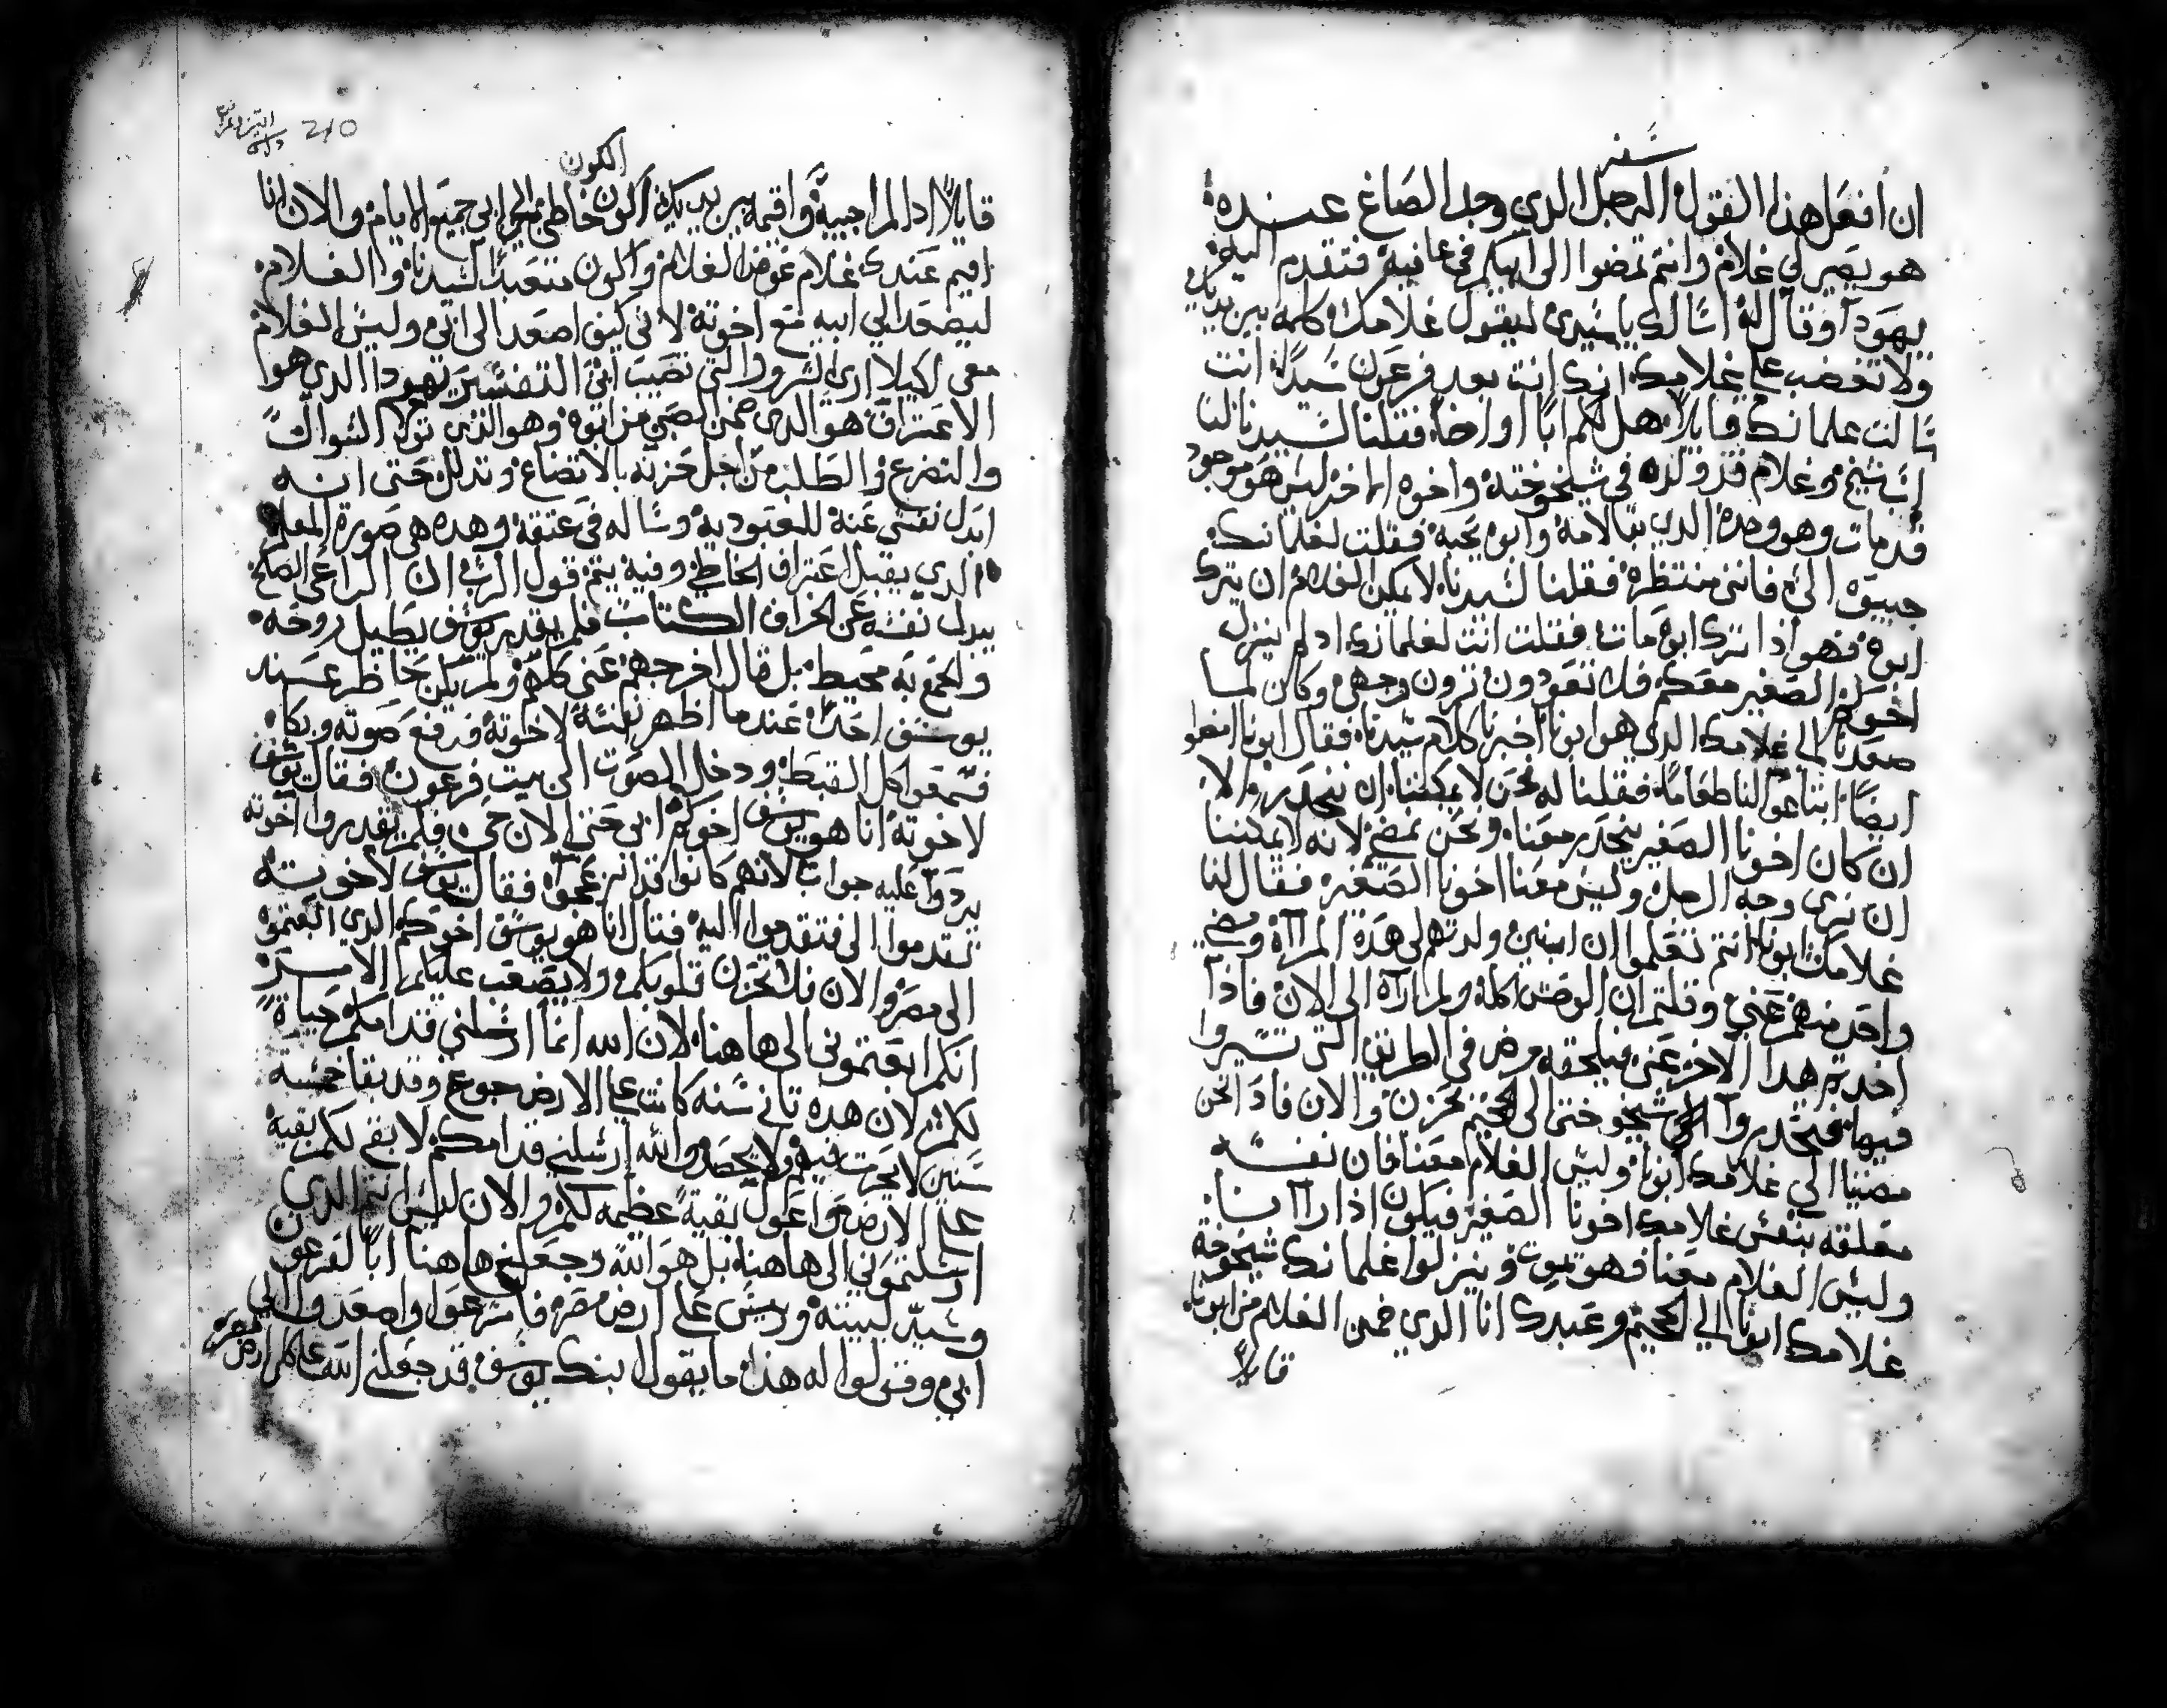 سنه
ان افعل هذا القول الرجل الدي وجد الصاع عنده
هو يصير لي غلام وانتم تمضوا الى ابيكم في عافيه فتقدم اليه
يهودا وقال له اسالك ياسيدي ليقول غلامك كلمه بين يديك
ولا تغضب على غلامك انك انت بعد فرعون سيدا انت
سالت غلمانك قايلا هل لكم ابا او اخا فقلنا لسيدنا لنا
اب شيخ وغلام قد ولده في شيخوخته واخوه الاخر ليس هو موجود
قد مات وهو وحده الدي بقا لامه وابوه يحبه فقلت لغلمانك
جيبوه الي فانني منتظره فقلنا لسيدنا لا يمكن الغلام ان يترك
ابوه فهو اذا ترك ابوه مات فقلت انت لغلمانك اد لم ينزل
اخوكم الصغير معكم فلا تعودون ترون وجهي وكان لما
صعدنا الى غلامك الدي هو ابونا اخبرنا كلام سيدنا فقال ابونا امضوا
ايضا ابتاعوا لنا طعاما فقلنا له نحن لا يمكننا ان ننحدر والا
ان كان اخونا الصغير ينحدر معنا ونحن نمضي لانه لا يمكننا
ان نرى وجه الرجل وليس معنا اخونا الصغير فقال لنا
غلامك ابونا انتم تعلموا ان ابنين ولدتهم لي هذه المرااه ومضي
واحد منهم عني وقلتم ان الوحش اكله ولم اراه الى الان فاذا
اخدتم هدا الاخر عني فيلحقه مرض في الطريق التي تسيروا
فيها فتحدروا شيخوختي الى الجحيم بحزن والان فاد انحن
مضينا الي غلامك ابونا وليس الغلام معنا فان نفسه
معلقه بنفس غلامك اخونا الصغير فيكون اذا راانا
وليس الغلام معنا فهو يموت وينزلوا غلمانك شيخوخة
غلامك ابونا الي الجحيم وعبدك انا الدي ضمن الغلام من ابونا
قايلا
210
الكون
قايلا ادا لم اجيبه واقيمه بين يديك اكون خاطي الى ابي جميع الايام والان انا
اقيم عندك غلام عوض الغلام واكون متعبدا لسيدنا والغلام
ليصعد الي ابيه مع اخوته لانني كيف اصعد الى ابي وليس الغلام
معي لكيلا اري الشرور التي تصيب ابي التفسير يهودا الدي هوا
الاعتراف هو الدي ضمن الصبي من ابوه وهو الذي تولا السوال
والتضرع والطلب من اجل حزنه بالاتضاع وتدلل حتى انه
ابدل نفسه عنه للعبودية وساله في عتقه وهده هي صورة المعلم
الدي يقبل اعتراف الخاطي وفيه يتم قول الرب ان الراعي الصالح
يبدل نفسه عن الخراف الكتاب فلم يقدر يوسف يطيل روحه
والجمع به محيط بل قال اخرجهم عني كلهم ولم يكن حاضر عند
يوسف احدا عندما اظهر نفسه لاخوته فرفع صوته وبكا
فسمعوا كل القبط ودخل الصوت الى بيت فرعون فقال يوسف
لاخوته انا هو يوسف اخوكم ابي حتى الان حي فلم تقدروا اخوته
يردوا عليه جواب لانهم كانوا قد انزعجوا فقال يوسف لاخوته
تقدموا الى فتقدموا اليه فقال انا هو يوسف اخوكم الدي ابعتموه
الى مصر والان فلا تحزن قلوبكم ولا يصعب عليكم الامر
انكم ابعتموني الى هاهنا لان الله انما ارسلني قدامكم حياة
لكم لان هده تاني سنه كانت على الارض جوع وقد بقا خمسة
سنين لا يحرث فيهم ولا يحصد والله ارسلني قدامكم لابقي لكم بقية
على الارض بقية عظيمه لكم والان ليس انتم الدي
ارسلتموني الى هاهنا بل هو الله وجعلني هاهنا ابا لفرعون
وسيد لبيته وريس على ارض مصر فاسرعوا واصعدوا الى
ابي وقولوا له هذا ما يقول ابنك يوسف قد جعلني الله على كل ارض مصر